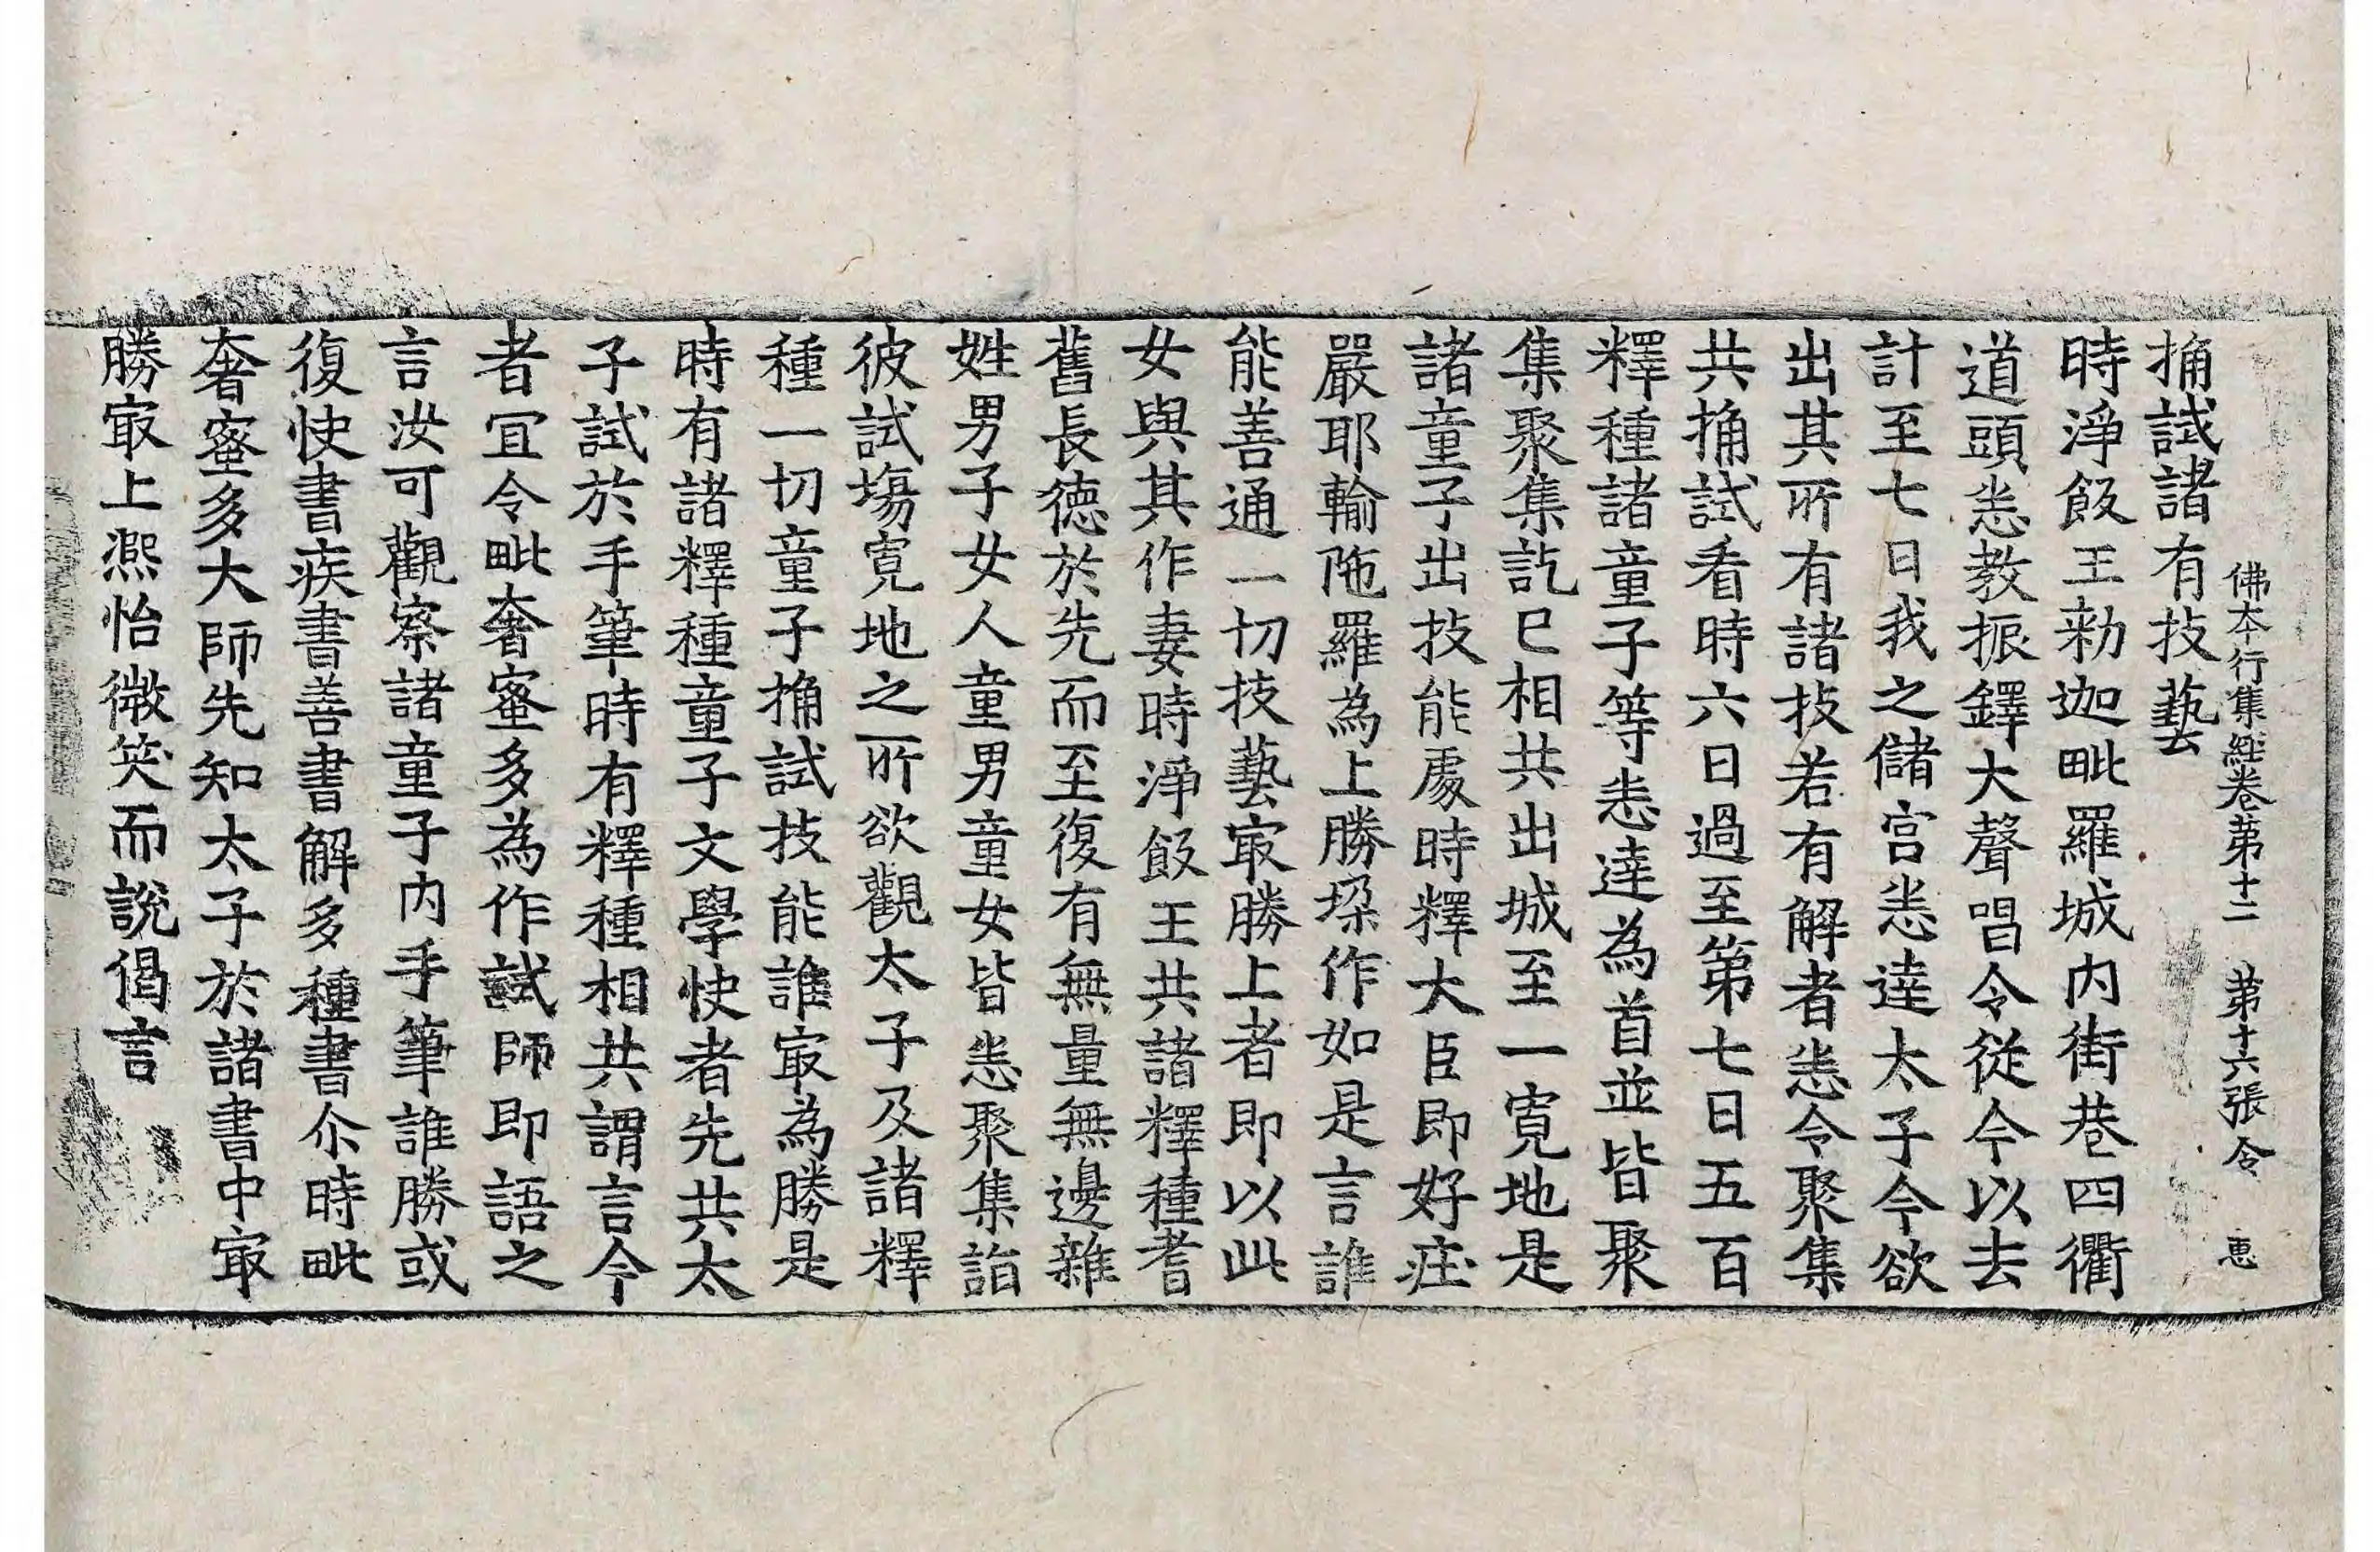 佛本行集経卷第十二　第十六張令　惠
捔試諸有技藝
時淨飯王勑迦毗羅城内街巷四衢
道頭悉教振鐸大聲唱令從今以去
計至七日我之儲宫悉達太子今欲
出其所有諸技若有解者悉令聚集
共捔試看時六日過至第七日五百
釋種諸童子等悉達為首並皆聚
集聚集訖已相共出城至一寬地是
諸童子出技能處時釋大臣即好庄
嚴耶輸陁羅為上勝垛作如是言誰
能善通一切技藝㝡勝上者即以此
女與其作妻時淨飯王共諸釋種耆
舊長德於先而至復有無量無邊雜
姓男子女人童男童女皆悉聚集詣
彼試塲寬地之所欲觀太子及諸釋
種一切童子捔試技能誰㝡為勝是
時有諸釋種童子文學快者先共太
子試於手筆時有釋種相共謂言今
者冝令毗奢蜜多為作試師即語之
言汝可觀察諸童子内手筆誰勝或
復快書疾書善書解多種書尒時毗
奢蜜多大師先知太子於諸書中㝡
勝㝡上熈怡微笑而說偈言